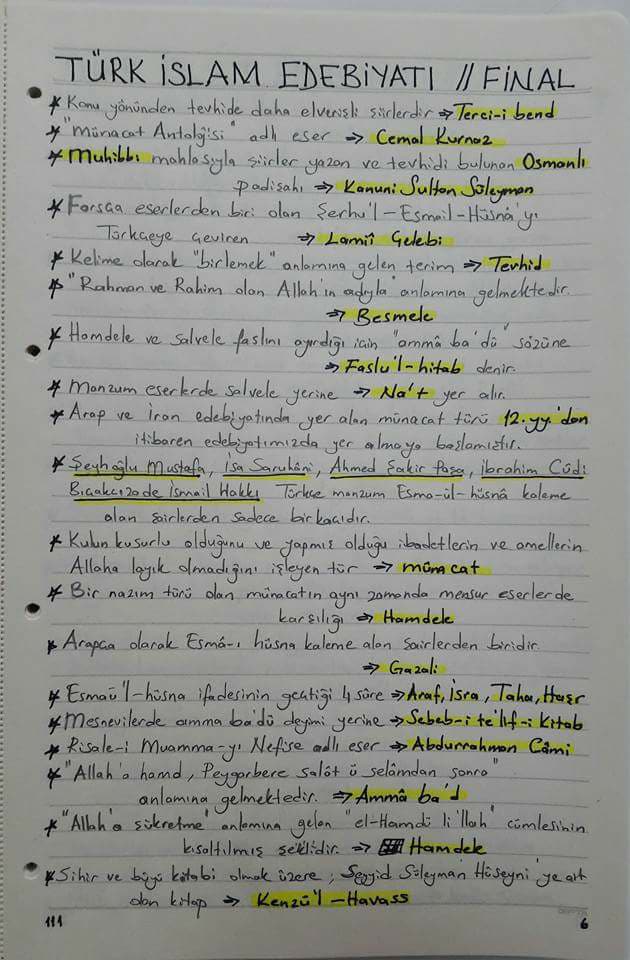 TÜRK İSLAM EDEBİYATI // FİNAL
* Konu yönünden tevhide daha elverişli şiirlerdir ⇒ Terci-i bend
* "Münacat Antolojisi" adlı eser ⇒ Cemal Kurnaz
* Muhibbi mahlasıyla şiirler yazan ve tevhidi bulunan Osmanlı
padişahı ⇒ Kanuni Sultan Süleyman
* Farsça eserlerden biri olan Şerhu'l-Esmail-Hüsnâ'yı
Türkçeye çeviren ⇒ Lamiî Çelebi
* Kelime olarak "birlemek" anlamına gelen terim ⇒ Tevhid
* "Rahman ve Rahim olan Allah'ın adıyla" anlamına gelmektedir.
⇒ Besmele
* Hamdele ve salvele faslını ayırdığı için "ammâ ba'dü" sözüne
⇒ Faslu'l-hitab denir.
* Manzum eserlerde salvele yerine ⇒ Na't yer alır.
* Arap ve İran edebiyatında yer alan münacat türü 12.yy.'dan
itibaren edebiyatımızda yer almaya başlamıştır.
* Şeyhoğlu Mustafa, İsa Saruhâni, Ahmed Şakir Paşa, İbrahim Cûdi
Bıçakçızade İsmail Hakkı Türkçe manzum Esma-ül-hüsnâ kaleme
alan şairlerden sadece birkaçıdır.
* Kulun kusurlu olduğunu ve yapmış olduğu ibadetlerin ve amellerin
Allaha layık olmadığını işleyen tür ⇒ münacat
* Bir nazım türü olan münacatın aynı zamanda mensur eserlerde
karşılığı ⇒ Hamdele
* Arapça olarak Esmâ-ı hüsna kaleme alan şairlerden biridir.
⇒ Gazali
* Esmaü'l-hüsna ifadesinin geçtiği 4 sûre ⇒ Araf, İsra, Taha, Haşr
* Mesnevilerde amma ba'dü deyimi yerine ⇒ Sebeb-i te'lif-i Kitab
* Risale-i Muamma-yı Nefise adlı eser ⇒ Abdurrahman Câmi
* "Allah'a hamd, Peygarbere salât ü selâmdan sonra"
anlamına gelmektedir. ⇒ Ammâ ba'd
* "Allah'a şükretme" anlamına gelen "el-Hamdü li'llah" cümlesinin
kısaltılmış şeklidir. ⇒ Hamdele
* Sihir ve büyü kitabı olmak üzere, Seyyid Süleyman Hüseyni'ye ait
olan kitap ⇒ Kenzü'l-Havass
111 6